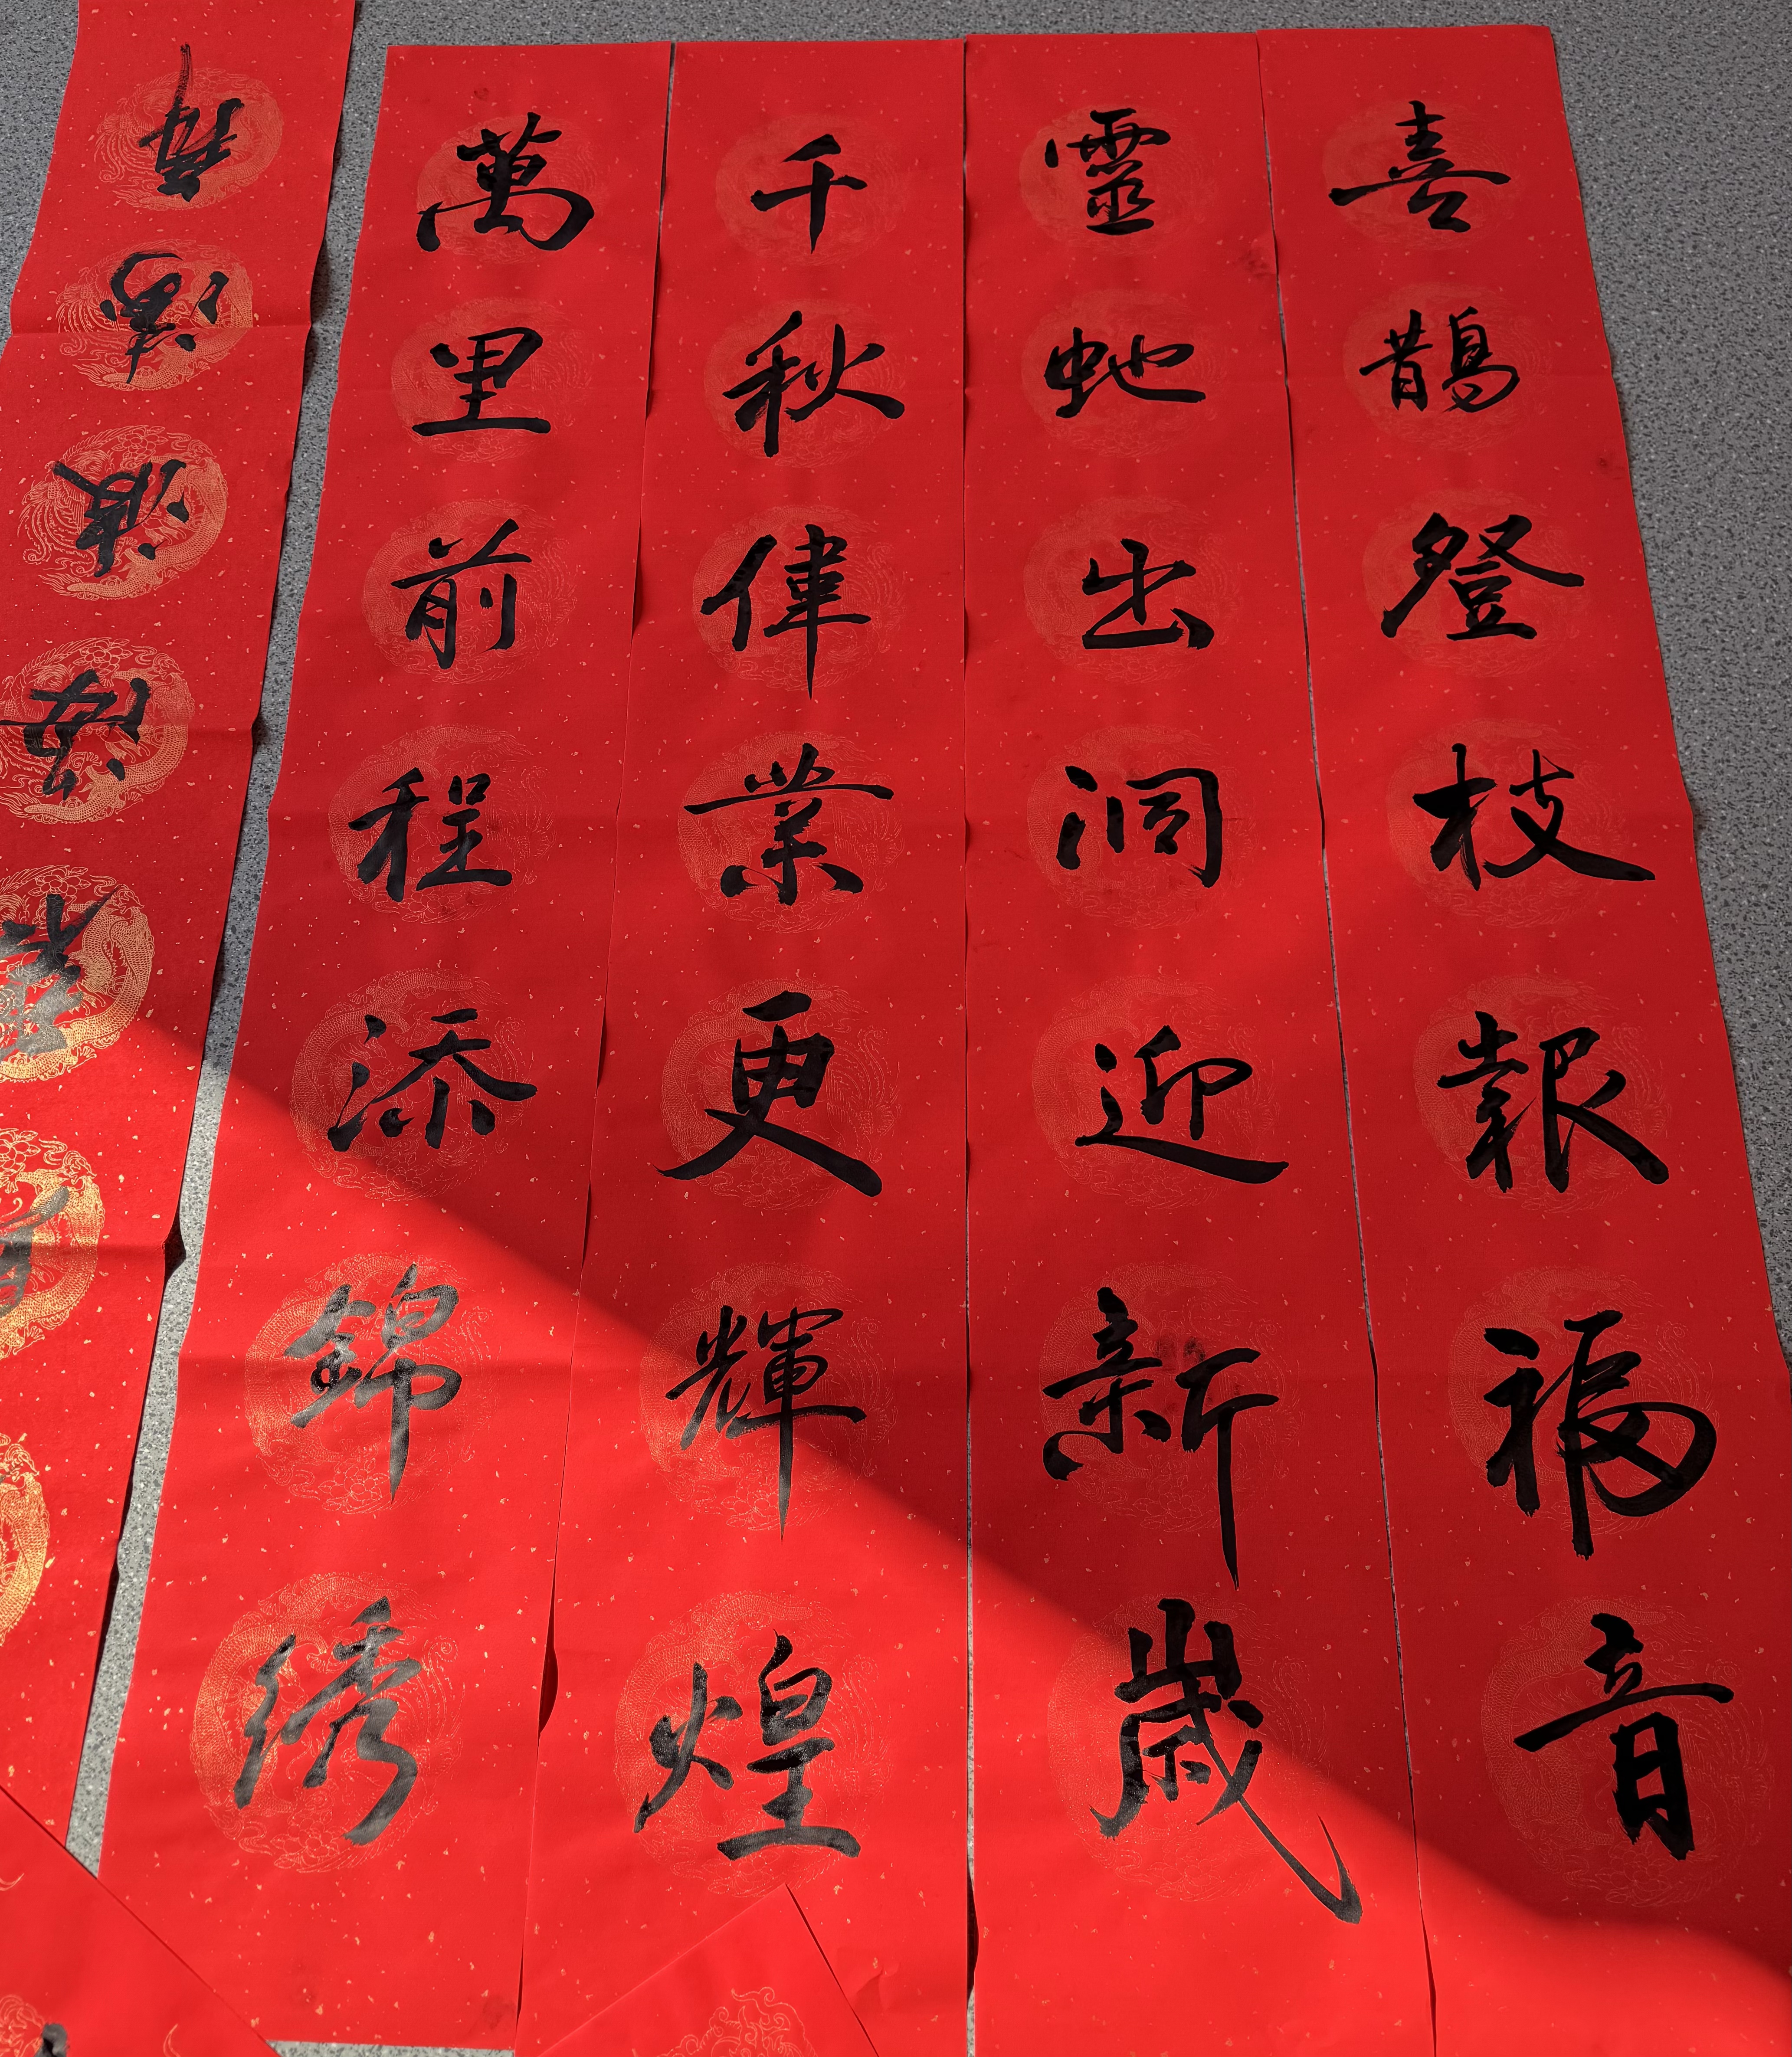 喜鵲登枝報福音
靈虵出洞迎新歲
千秋偉業更輝煌
萬里前程添錦綉